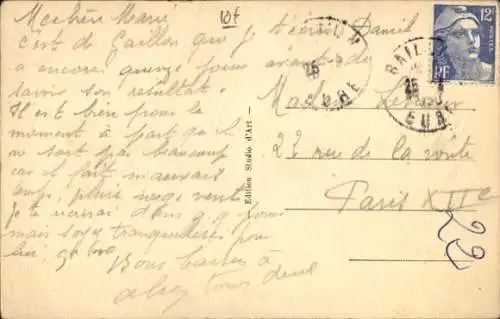 Ma chère Marie
10f
c'est de Gaillon que je t'écris Daniel
a encore quinze jours avant de
savoir son résultat.
Il est bien pour le
moment à part qu'il
ne sort pas beaucoup
car il fait mauvais
temps, pluie neige vent
je te verrai dans q q jours
mais soyez tranquilles pour
lui, ça va
Bons baisers à
chez tous deux
Edition Studio d'Art -
Madame
22 rue de la voûte
Paris XIIe
22
12f
RF
EURE
EURE
26
26